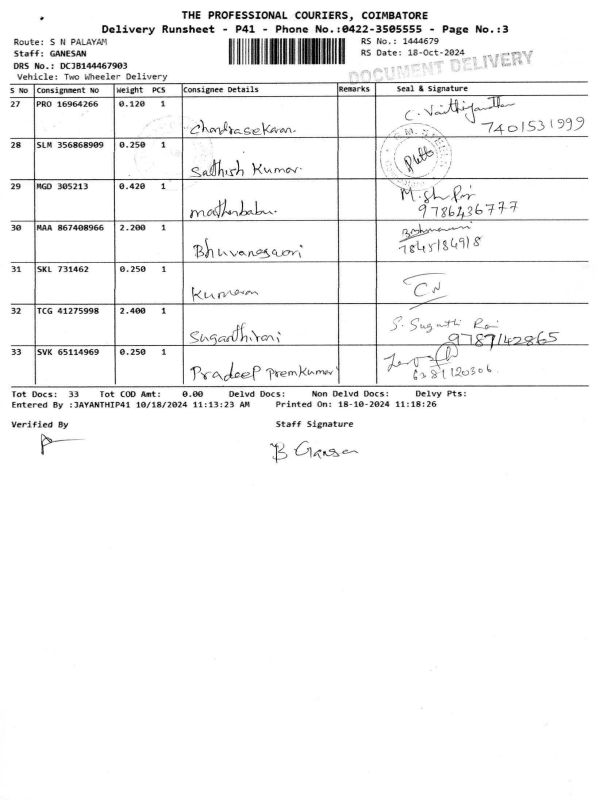 THE PROFESSIONAL COURIERS, COIMBATORE
Delivery Runsheet - P41 - Phone No.:0422-3505555 - Page No.:3
Route: S N PALAYAM RS No.: 1444679
Staff: GANESAN RS Date: 18-Oct-2024
DOCUMENT DELIVERY
DRS No.: DCJB144467903
Vehicle: Two Wheeler Delivery
S No Consignment No Weight PCS Consignee Details Remarks Seal & Signature
27 PRO 16964266 0.120 1 Chandrasekaran C. Vaithiyanathan
7401531999
28 SLM 356868909 0.250 1 Sathish Kumar.
29 MGD 305213 0.420 1 mathanbabu. 9786436777
30 MAA 867408966 2.200 1 Bhuvaneswori 7845184918
31 SKL 731462 0.250 1 Kumaran CN
32 TCG 41275998 2.400 1 Suganthirani S. Suganthi Rani
9787142865
33 SVK 65114969 0.250 1 Pradeep Premkumar 6381120306.
Tot Docs: 33 Tot COD Amt: 0.00 Delvd Docs: Non Delvd Docs: Delvy Pts:
Entered By :JAYANTHIP41 10/18/2024 11:13:23 AM Printed On: 18-10-2024 11:18:26
Verified By Staff Signature
B Ganesan